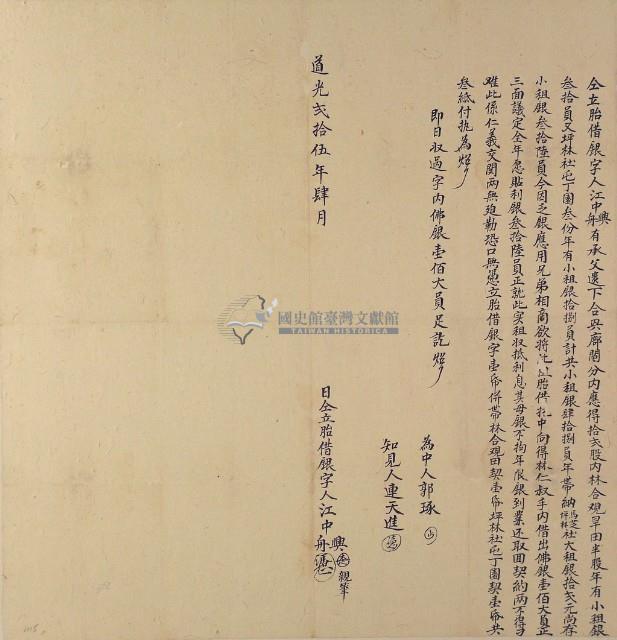 仝立胎借銀字人江中興舟有承父遺下合興廍闊分內應得拾弍股內林合觀旱田半股年有小租銀
叁拾員又坪林社屯丁園叁份年有小租銀拾捌員計共小租銀肆拾捌員年帶納馬芝坪林社大租銀拾弍元尚存
小租銀叁拾陸員今因乏銀應用兄弟相商欲將此胎借托中向得林仁叔手內借出佛銀壹佰大員正
三面議定全年愿貼利銀叁拾陸員正就此穸租收抵利息其母銀不拘年限銀到業还取囬契約两不得刁
难此係仁義交関两無廹勒恐口無憑立胎借銀字壹帋併帶林合觀田契壹帋坪林社屯丁園契壹帋共
叁紙付执為炤
即日収過字內佛銀壹佰大員足訖炤
為中人郭琢
知見人連天進
道光弍拾伍年肆月 日仝立胎借銀字人江中興舟 親筆
國史館臺灣文獻館
TAIWAN HISTORICA